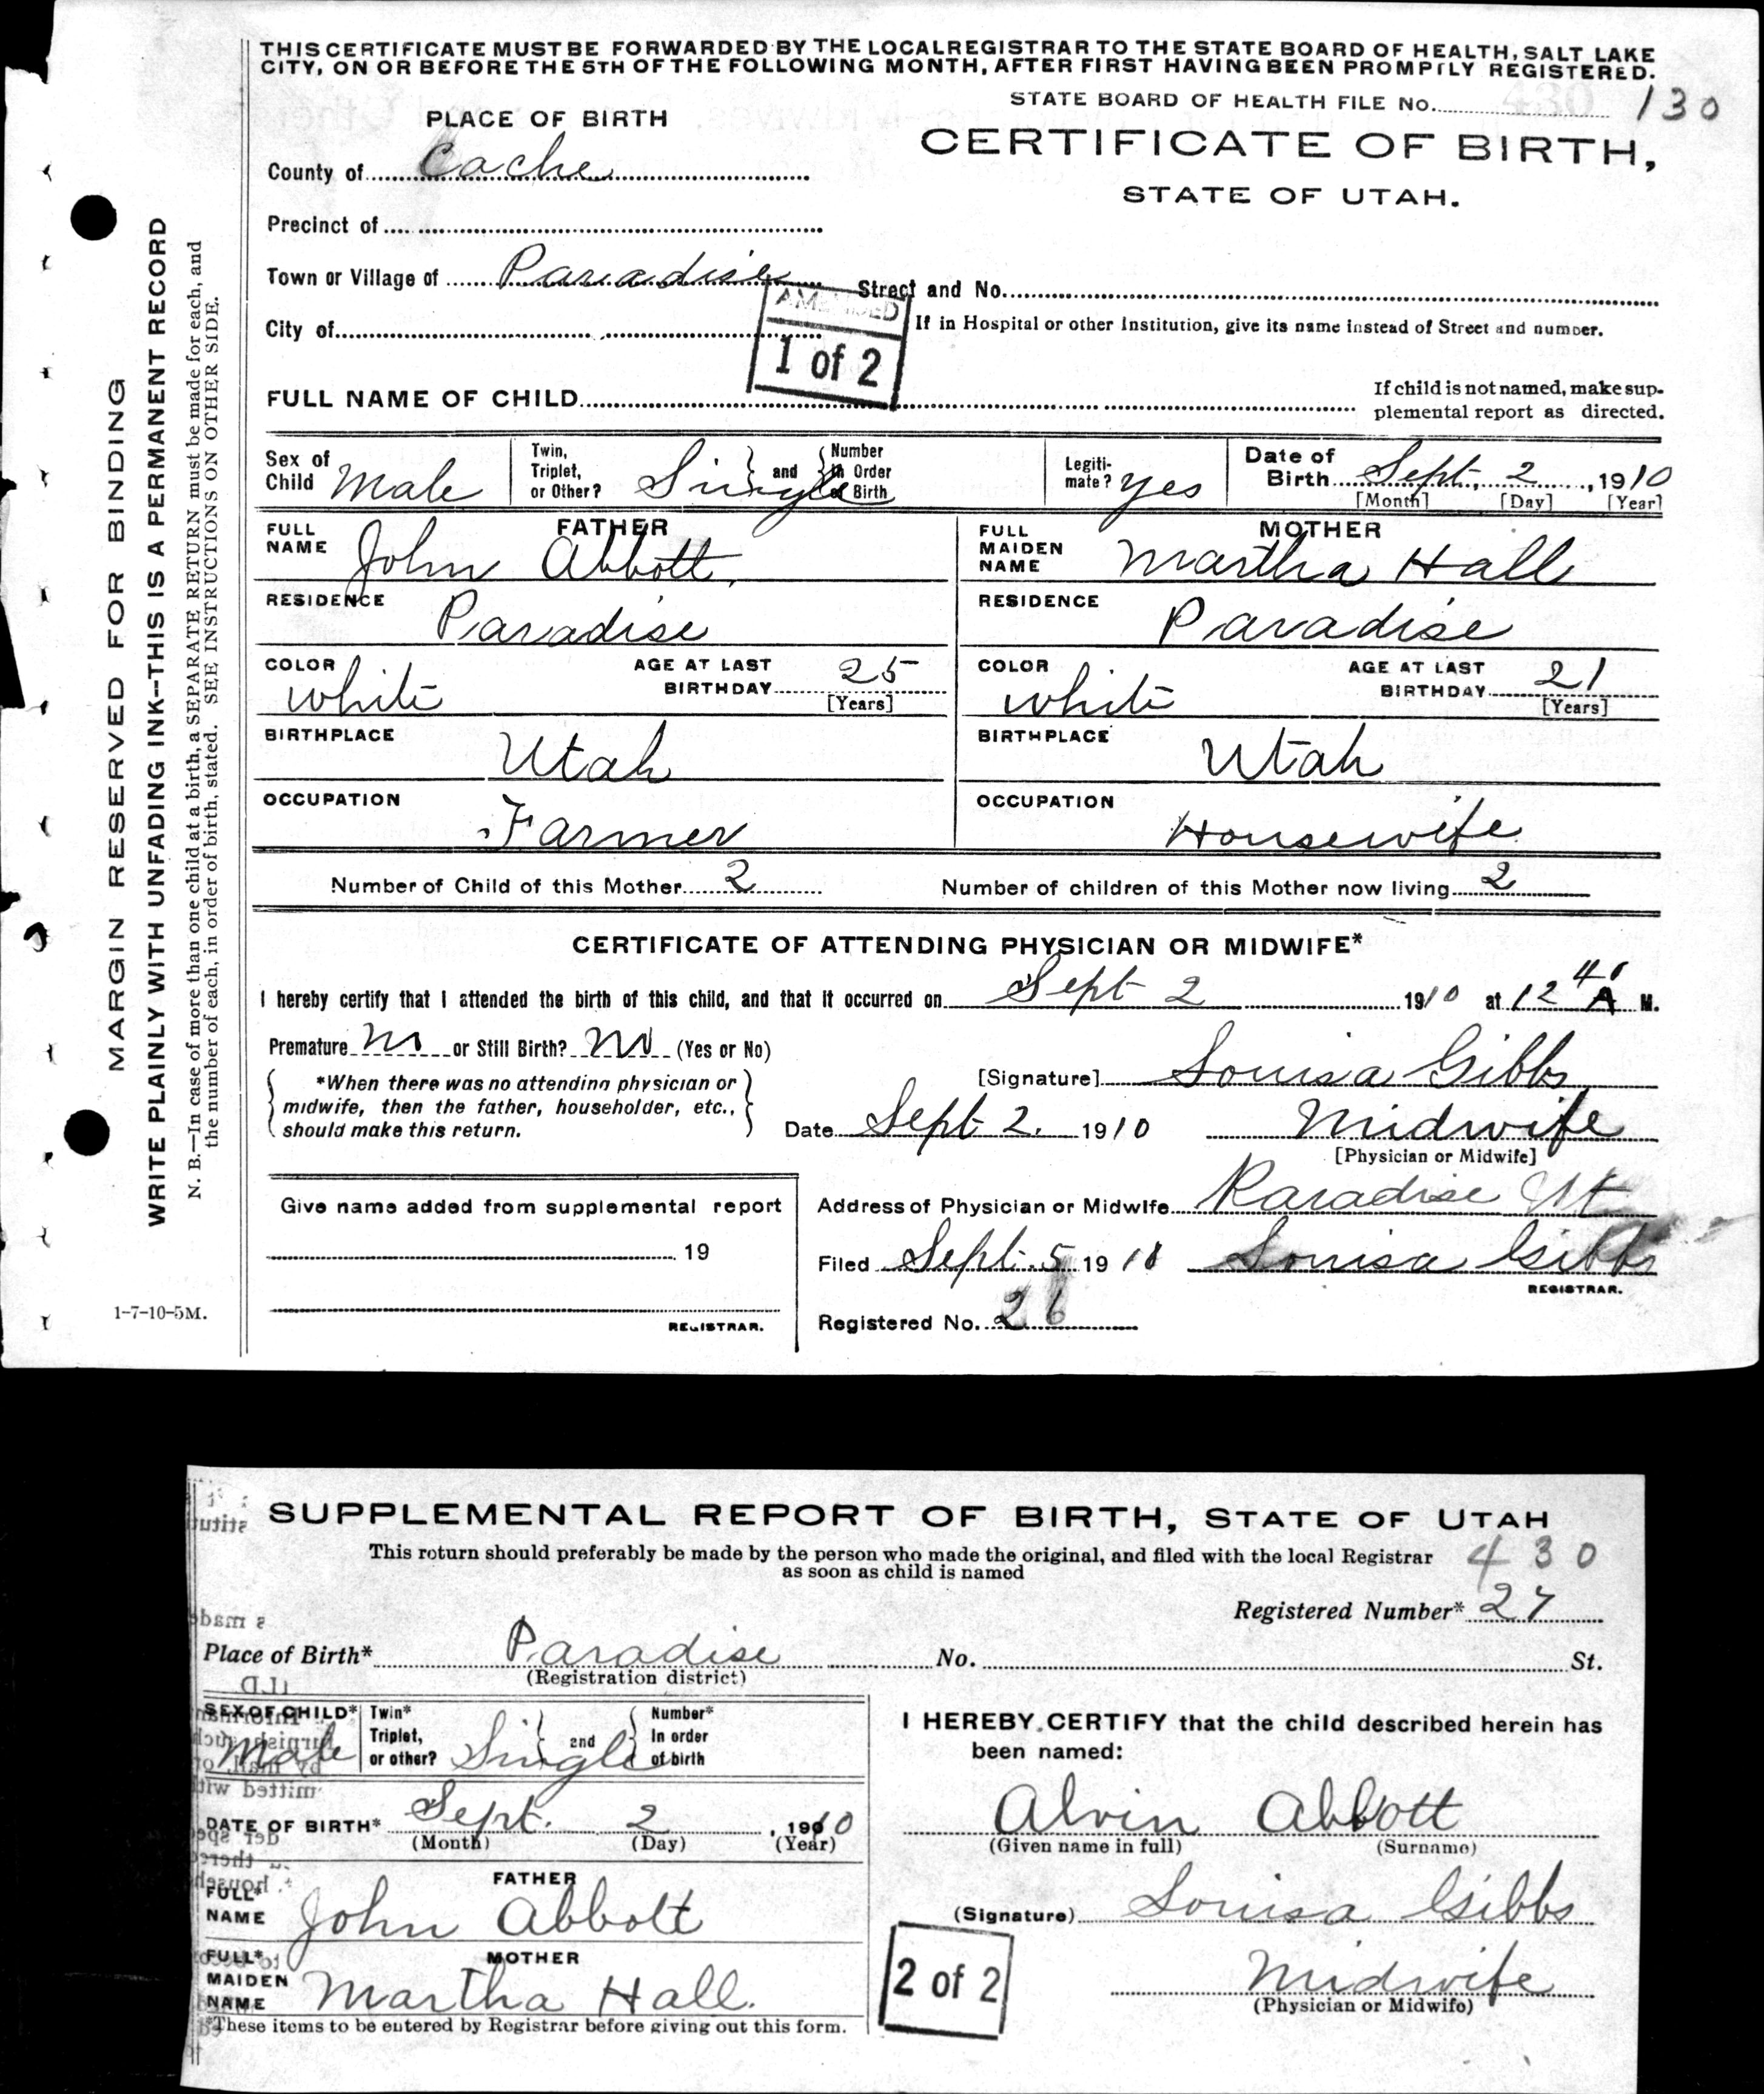 THIS CERTIFICATE MUST BE FORWARDED BY THE LOCAL REGISTRAR TO THE STATE BOARD OF HEALTH, SALT LAKE
CITY, ON OR BEFORE THE 5TH OF THE FOLLOWING MONTH, AFTER FIRST HAVING BEEN PROMPTLY REGISTERED.
STATE BOARD OF HEALTH FILE No. 430 130
PLACE OF BIRTH
CERTIFICATE OF BIRTH,
STATE OF UTAH.
County of Cache
Precinct of
Town or Village of Paradise
Street and No.
City of
If in Hospital or other Institution, give its name instead of Street and number.
AMENDED
1 of 2
FULL NAME OF CHILD
If child is not named, make sup-
plemental report as directed.
Sex of Child Male
Twin, Triplet, or Other? Single and Number in Order of Birth
Legiti-mate? yes
Date of Birth Sept. 2, 1910
[Month] [Day] [Year]
FATHER
FULL NAME John Abbott.
RESIDENCE Paradise
COLOR white AGE AT LAST BIRTHDAY 25 [Years]
BIRTHPLACE Utah
OCCUPATION Farmer
MOTHER
FULL MAIDEN NAME Martha Hall
RESIDENCE Paradise
COLOR white AGE AT LAST BIRTHDAY 21 [Years]
BIRTHPLACE Utah
OCCUPATION Housewife
Number of Child of this Mother 2 Number of children of this Mother now living 2
CERTIFICATE OF ATTENDING PHYSICIAN OR MIDWIFE*
I hereby certify that I attended the birth of this child, and that it occurred on Sept 2 1910 at 12 A M.
Premature No or Still Birth? No (Yes or No)
*When there was no attending physician or
midwife, then the father, householder, etc.,
should make this return.
[Signature] Louisa Gibbs
Date Sept 2. 1910 Midwife
[Physician or Midwife]
Give name added from supplemental report
19
REGISTRAR.
Address of Physician or Midwife Paradise Ut
Filed Sept. 5 1910 Louisa Gibbs
REGISTRAR.
Registered No. 26
MARGIN RESERVED FOR BINDING
WRITE PLAINLY WITH UNFADING INK—THIS IS A PERMANENT RECORD
N. B.—In case of more than one child at a birth, a SEPARATE RETURN must be made for each, and
the number of each, in order of birth, stated. SEE INSTRUCTIONS ON OTHER SIDE.
1-7-10-5M.
SUPPLEMENTAL REPORT OF BIRTH, STATE OF UTAH
This return should preferably be made by the person who made the original, and filed with the local Registrar
as soon as child is named
430
Registered Number* 27
Place of Birth* Paradise No. St.
(Registration district)
SEX OF CHILD* Male
Twin* Triplet, or other? Single and Number* In order of birth
DATE OF BIRTH* Sept. 2, 1910
(Month) (Day) (Year)
FATHER
FULL* NAME John Abbott
MOTHER
FULL* MAIDEN NAME Martha Hall.
*These items to be entered by Registrar before giving out this form.
I HEREBY CERTIFY that the child described herein has
been named:
Alvin Abbott
(Given name in full) (Surname)
(Signature) Louisa Gibbs
Midwife
(Physician or Midwife)
2 of 2